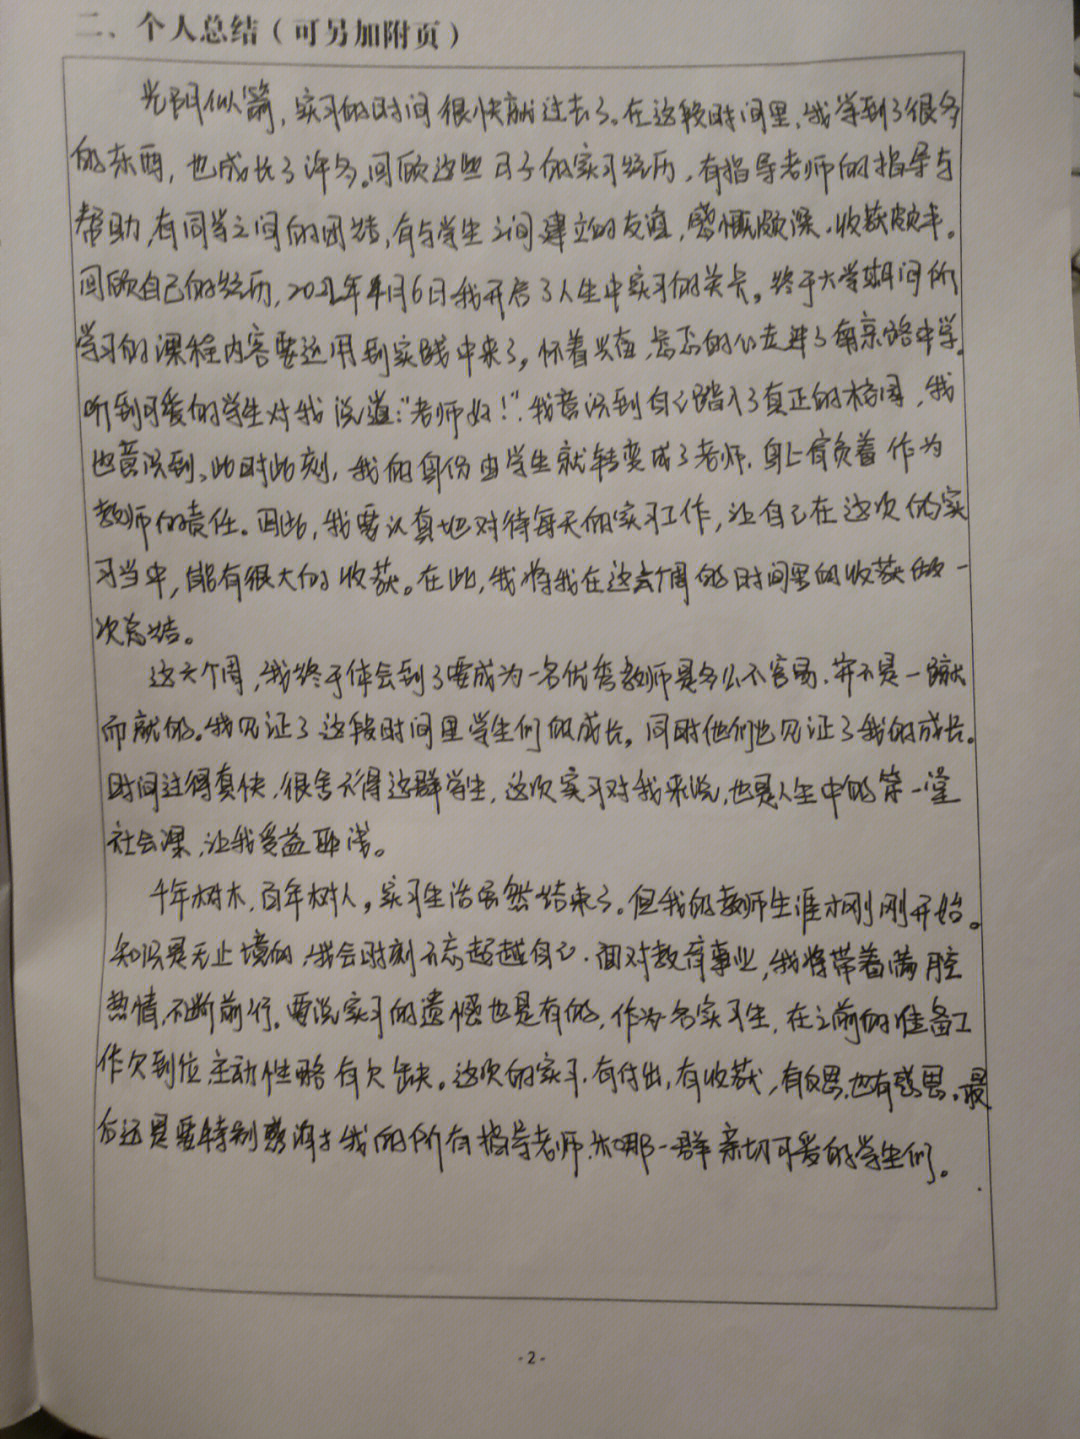 二、个人总结（可另加附页）
光阴似箭，实习的时间很快就过去了。在这段时间里，我学到了很多
的东西，也成长了许多。回顾这些日子的实习经历，有指导老师的指导与
帮助，有同学之间的团结，有与学生之间建立的友谊，感慨颇深，收获颇丰。
回顾自己的经历，年4月6日我开启了人生中实习的关卡。终于大学期间所
学习的课程内容要运用到实践中来了，怀着兴奋、忐忑的心走进了南京路中学。
听到可爱的学生对我说道：“老师好！”，我意识到自己踏入了真正的校园，我
也意识到，此时此刻，我的身份由学生就转变成了老师，身上肩负着作为
教师的责任。因此，我要认真地对待每天的实习工作，让自己在这次的实
习当中，能有很大的收获。在此，我将我在这六个周的时间里的收获做一
次总结。
这六个周，我终于体会到了要成为一名优秀教师是多么不容易，并不是一蹴
而就的。我见证了这段时间里学生们的成长，同时他们也见证了我的成长。
时间过得真快，很舍不得这群学生，这次实习对我来说，也是人生中的第一堂
社会课，让我受益匪浅。
千年树木，百年树人，实习生活虽然结束了。但我的教师生涯才刚刚开始。
知识是无止境的，我会时刻不忘超越自己，面对教育事业，我将带着满腔
热情，不断前行。要说实习的遗憾也是有的，作为名实习生，在之前的准备工
作欠到位，主动性略有欠缺。这次的实习，有付出，有收获，有反思，也有感恩。最
后还是要特别感谢我的所有指导老师，和那一群亲切可爱的学生们。
-2-